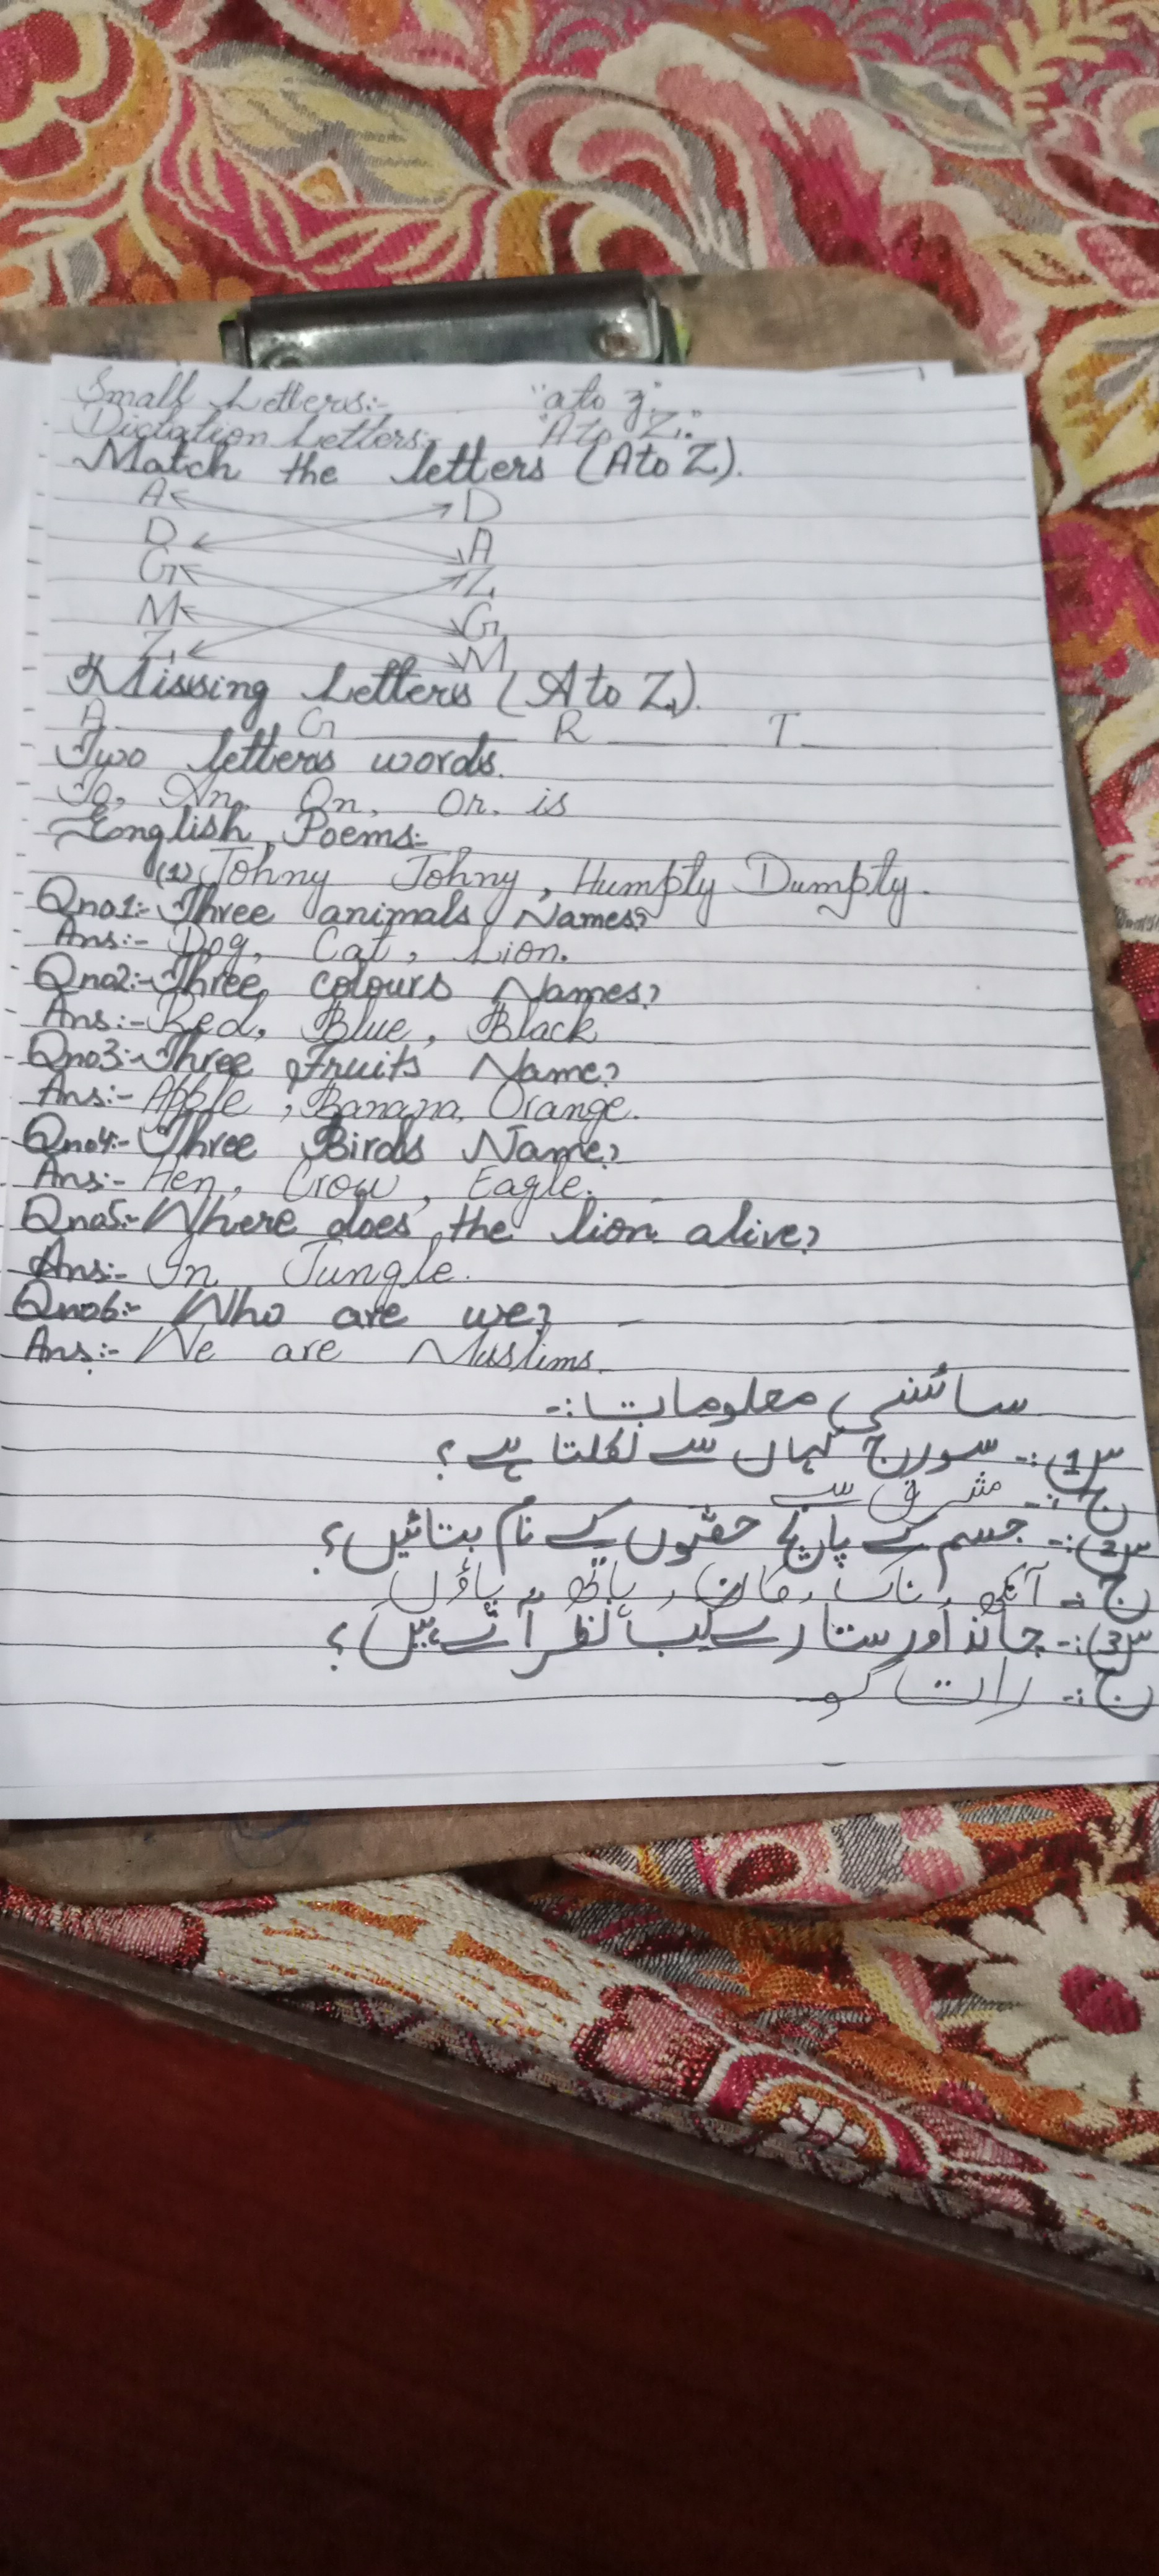 Small Letters:- "a to z".
Dictation Letters:- "A to Z."
Match the letters (A to Z).
A D
D A
G Z
M G
Z M
Missing Letters (A to Z).
A ___ G ______ R ___ T ___
Two letters words.
To, An, On, Or, is
English Poems:-
(1) Johny Johny, Humpty Dumpty.
Qno1:- Three animals Names?
Ans:- Dog, Cat, Lion.
Qno2:- Three colours Names?
Ans:- Red, Blue, Black
Qno3:- Three Fruits Name?
Ans:- Apple, Banana, Orange.
Qno4:- Three Birds Name?
Ans:- Hen, Crow, Eagle.
Qno5:- Where does the lion alive?
Ans:- In Jungle.
Qno6:- Who are we?
Ans:- We are Muslims.
سائنسی معلومات:-
س1:- سورج کہاں سے نکلتا ہے؟
ج:- مشرق سے
س2:- جسم کے پانچ حصّوں کے نام بتائیں؟
ج:- آنکھ، ناک، کان، ہاتھ، پاؤں
س3:- چاند اور ستارے کب نظر آتے ہیں؟
ج:- رات کو